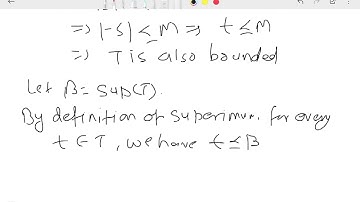 => |-s| < M => t ≤ M
=> T is also bounded
Let β = Sup(T).
By definition of superimum. for every
t ∈ T, we have t ≤ β